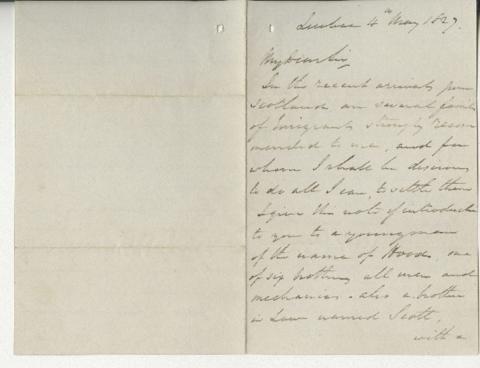 Quebec 4th May 1827.
My Dear Sir,
In the recent arrivals from
Scotland are several families
of Emigrants strongly recom
mended to me, and for
whom I shall be desirous
to do all I can, to settle them
I give this note of introduction
to you to a young man
of the name of Wood, one
of six brothers, all men and
mechanics - also a brother
in Law named Scott,
with a